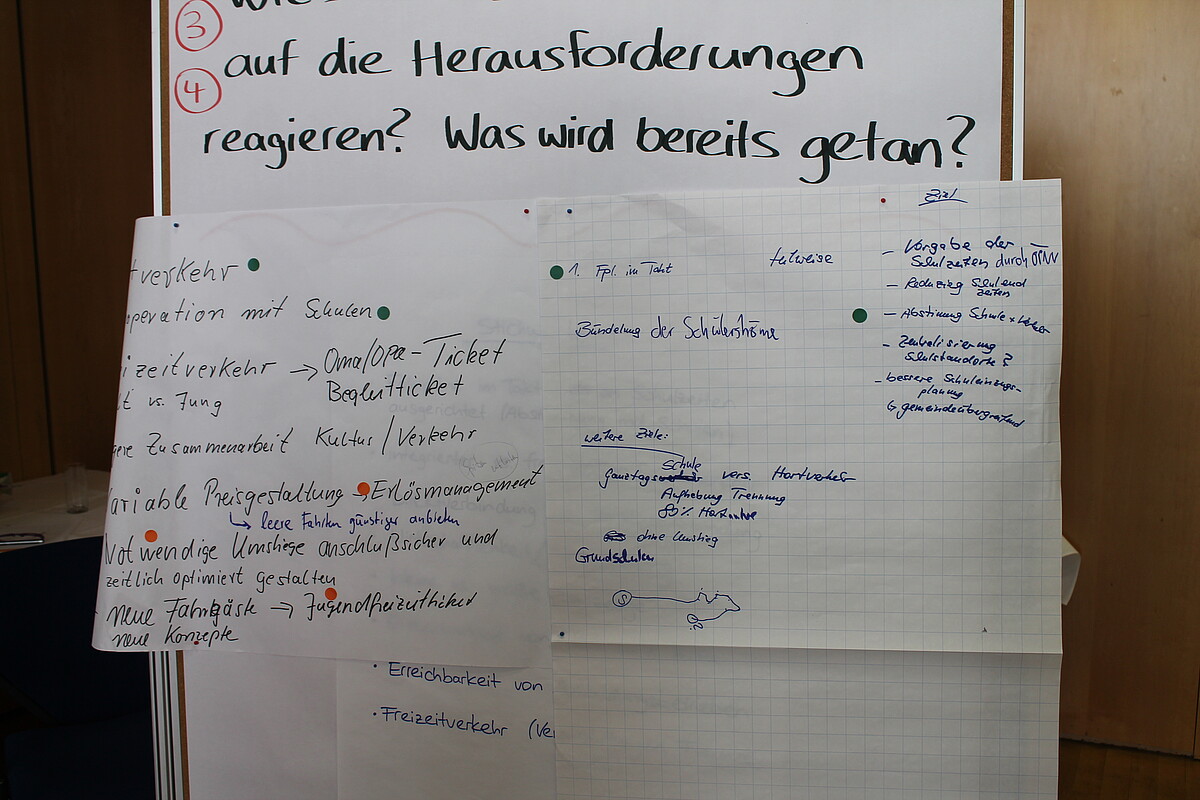 ③
④
auf die Herausforderungen
reagieren? Was wird bereits getan?
verkehr
operation mit Schulen
izeitverkehr → Oma/Opa-Ticket
Begleitticket
vs. Jung
Zusammenarbeit Kultur/Verkehr
ariable Preisgestaltung → Erlösmanagement
↳ leere Fahrten günstiger anbieten
Notwendige Umstiege anschlußsicher und
zeitlich optimiert gestalten
neue Fahrgäste → Jugendfreizeitticket
neue Konzepte
1. Fpl. im Takt teilweise
Bündelung der Schülerströme
weitere Ziele:
Schule
Ganztags vers. Hortverkehr
Aufhebung Trennung
80%
ohne Umstieg
Grundschulen
S
Ziel
- Vorgabe der
Schulzeiten durch ÖPNV
- Reduzierg Schulend
zeiten
- Abstimung Schule
- Zentralisierung
Schulstandorte?
- bessere Schuleinzugs-
planung
↳ gemeindeübergreifend
• Erreichbarkeit von
• Freizeitverkehr (Ve